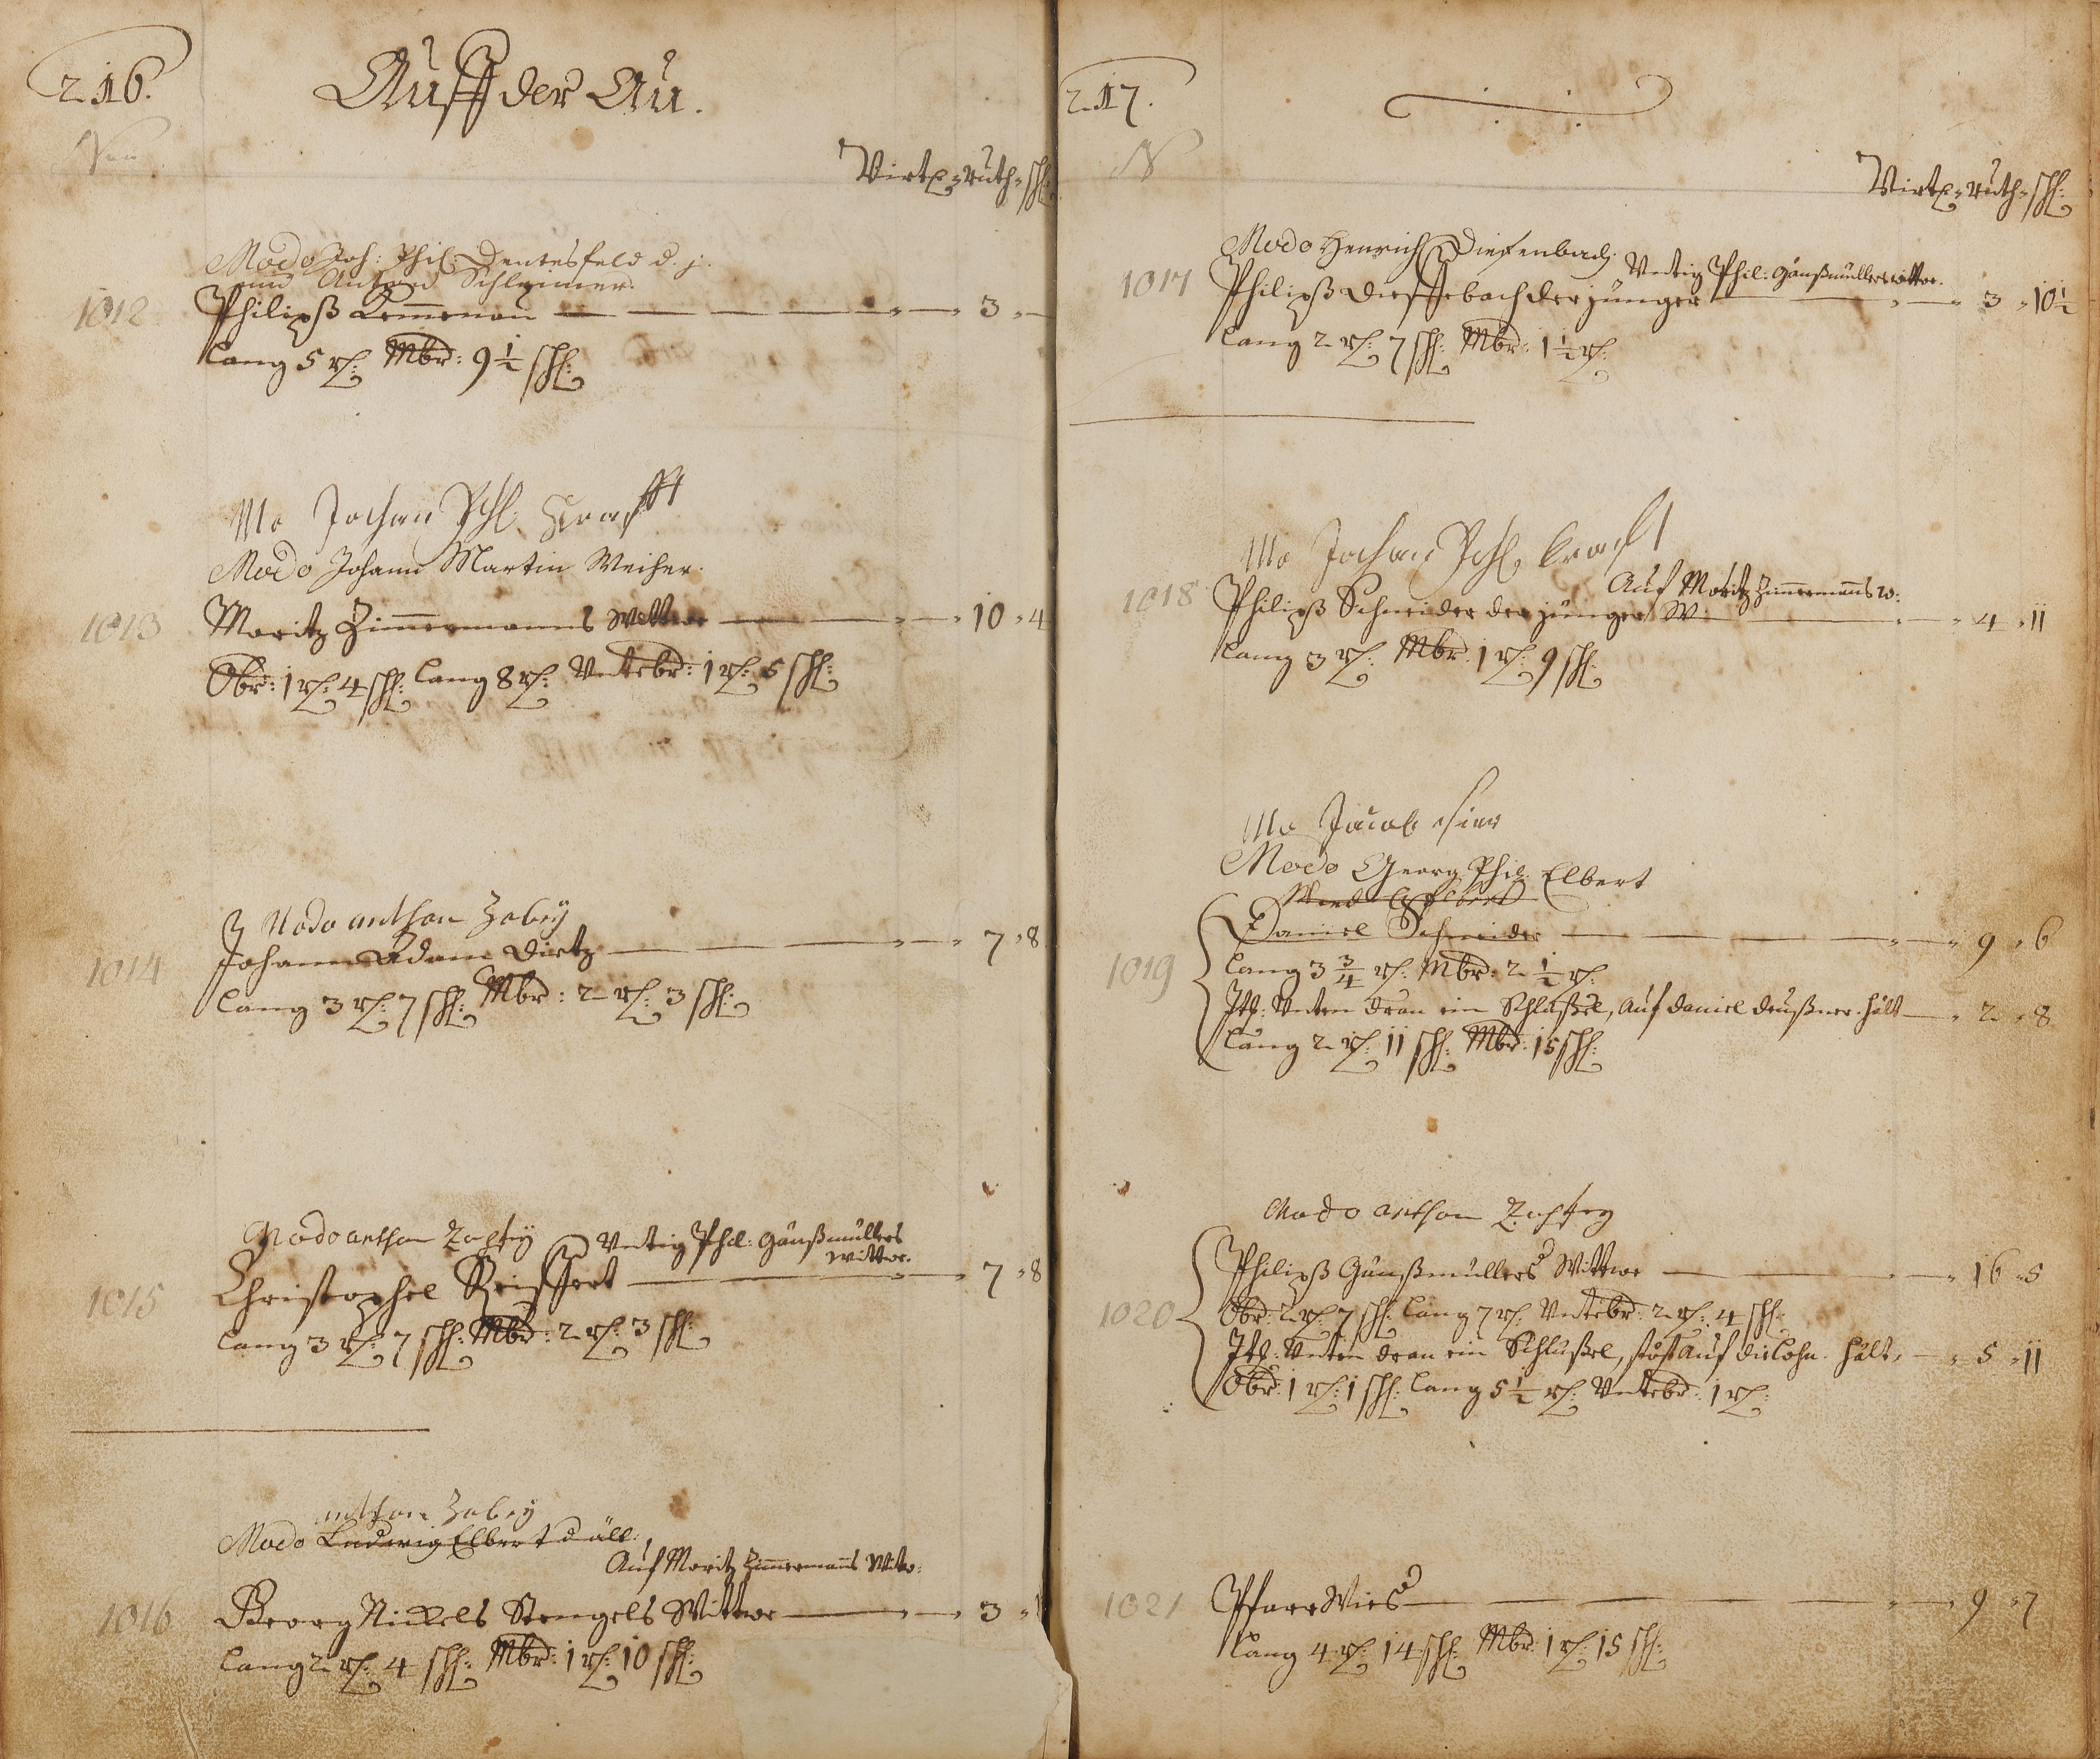 216.
Auff der Au.
Virtel ruth schl:
Modo Joh: Phil: Dentesfeld d. j.
und Schleimer
1012
Philipß Lemenau 3
lang 5 rl: Mbr: 9½ schl:
Mo Johan Phl Krafft
Modo Johann Martin Weiher.
1013
Moritz Zimmermanns Wittwe 10 4
Obr: 1 rl: 4 schl: lang 8 rl: Untebr: 1 rl: 5 schl:
Modo anthon Zobey
1014
Johann Adam Dietz 7 8
lang 3 rl: 7 schl: Mbr: 2 rl: 3 schl:
Modo anthon Zopfey Untig Phil: Gaußmüllers
wittwe.
1015
Christophel Seiffert 7 8
lang 3 rl: 7 schl: Mbr: 2 rl: 3 schl:
anthon Zobey
Modo Ludwig Elbert d. ält:
Auf Moritz Zimmermanns Witw:
1016
Georg Nickels Stengels Wittwe 3
lang 2 rl: 4 schl: Mbr: 1 rl: 10 schl:
217.
N
Virtel ruth schl:
Modo Henrich Diefenbach.
Untig Phil: Gaußmüllers wittwe.
1017
Philipß Dieffebach der jünger 3 10½
lang 2 rl: 7 schl: Mbr: 1½ rl:
Mo Johan Phl Kraft
Auf Moritz Zimmermanns w:
1018
Philipß Schneider der jünger W 4 11
lang 3 rl: Mbr: 1 rl: 9 schl:
Mo Jacob
Modo Georg Phil: Elbert
1019
Daniel Schneider 9 6
lang 3¾ rl: Mbr: 2½ rl:
Itz: Unten dran ein Schlußel, Auf Daniel Deußner hält 2 8
lang 2 rl: 11 schl: Mbr: 15 schl:
Modo anthon Zopfey
1020
Philipß Gaußmüllers Wittwe 16 5
Obr: 2 rl: 7 schl: lang 7 rl: Untebr: 2 rl: 4 schl:
Itz: Unten dran ein Schlußel, stöst auf die Lohn. hält, 5 11
Obr: 1 rl: 1 schl: lang 5½ rl: Untebr: 1 rl:
1021
Pfarr Wies 9 7
lang 4 rl: 14 schl: Mbr: 1 rl: 15 schl: